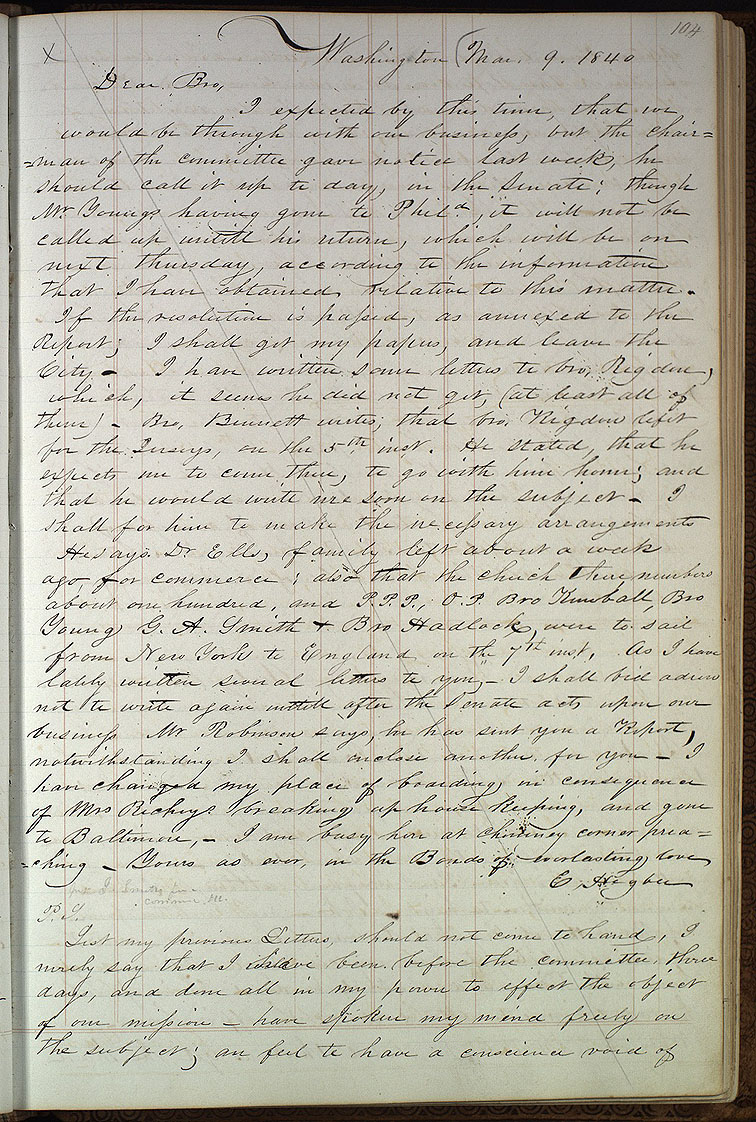 104
X Washington Mar. 9. 1840
Dear Bro,
I expected by this time, that we
would be through with our business, but the chair=
=man of the committee gave notice last week, he
should call it up to day, in the Senate; though
Mr Youngs having gone to Phild, it will not be
called up untill his return, which will be on
next thursday, according to the information
that I have obtained, relative to this matter.
If the resolution is passed, as annexed to the
Report; I shall get my papers, and leave the
City — I have written some letters to bro, Rigdon,
which, it seems he did not get, (at least all of
them) — Bro, Bennett writes, that bro, Rigdon left
for the Jerseys, on the 5th inst. He stated, that he
expects me to come there, to go with him home; and
that he would write me soon on the subject — I
shall for him to make the necessary arrangements
He says Dr Ells, family left about a week
ago for commerce; also that the church there numbers
about one hundred, and P.P.P., O.P. Bro Kimball, Bro
Young, G. A. Smith & Bro Hadlock, were to sail
from New York to England on the 7th inst. As I have
lately written several letters to you, — I shall bid adieu
not to write again untill after the Senate acts upon our
business Mr Robinson says, he has sent you a Report,
notwithstanding I shall inclose another for you — I
have changed my place of boarding, in consequence
of Mrs Richeys breaking up house keeping, and gone
to Baltimore, — I am busy here at chimney corner prea=
=ching — Yours as ever, in the Bonds of everlasting love
E. Higbee
P.S.
Lest my previous Letters, should not come to hand, I
merely say that I have been before the committee three
days, and done all in my power to effect the object
of our mission — have spoken my mind freely on
the subject; an feel to have a conscience void of